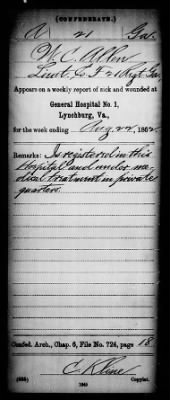 (CONFEDERATE.)
A 21 Ga.
W. C. Allen
Lieut. Co. F 21 Regt. Ga.
Appears on a weekly report of sick and wounded at
General Hospital No. 1,
Lynchburg, Va.,
for the week ending Aug 22, 1862.
Remarks: Is registered in this
Hospital and under me-
dical treatment in private
quarters.
Confed. Arch., Chap. 6, File No. 724, page 18
C. Kline
Copyist.